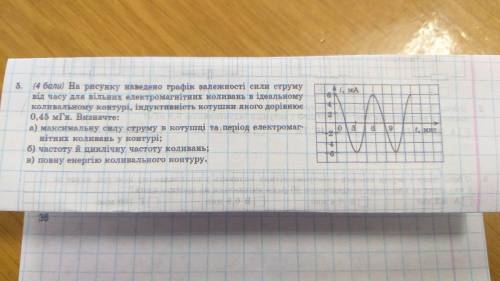 5. (4 бали) На рисунку наведено графік залежності сили струму
від часу для вільних електромагнітних коливань в ідеальному
коливальному контурі, індуктивність котушки якого дорівнює
0,45 мГн. Визначте:
а) максимальну силу струму в котушці та період електромаг-
нітних коливань у контурі;
б) частоту й циклічну частоту коливань;
в) повну енергію коливального контуру.
i, мА
6
4
2
0 3 6 9 t, мкс
-2
-6
36